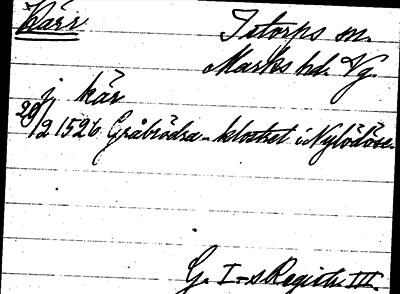 Kärr
Istorps sn.
Marks hd. Vg.
j kär
29/12 1526 Gråbrödra-klostret i Nylödöse.
G. I-s Registr. III.